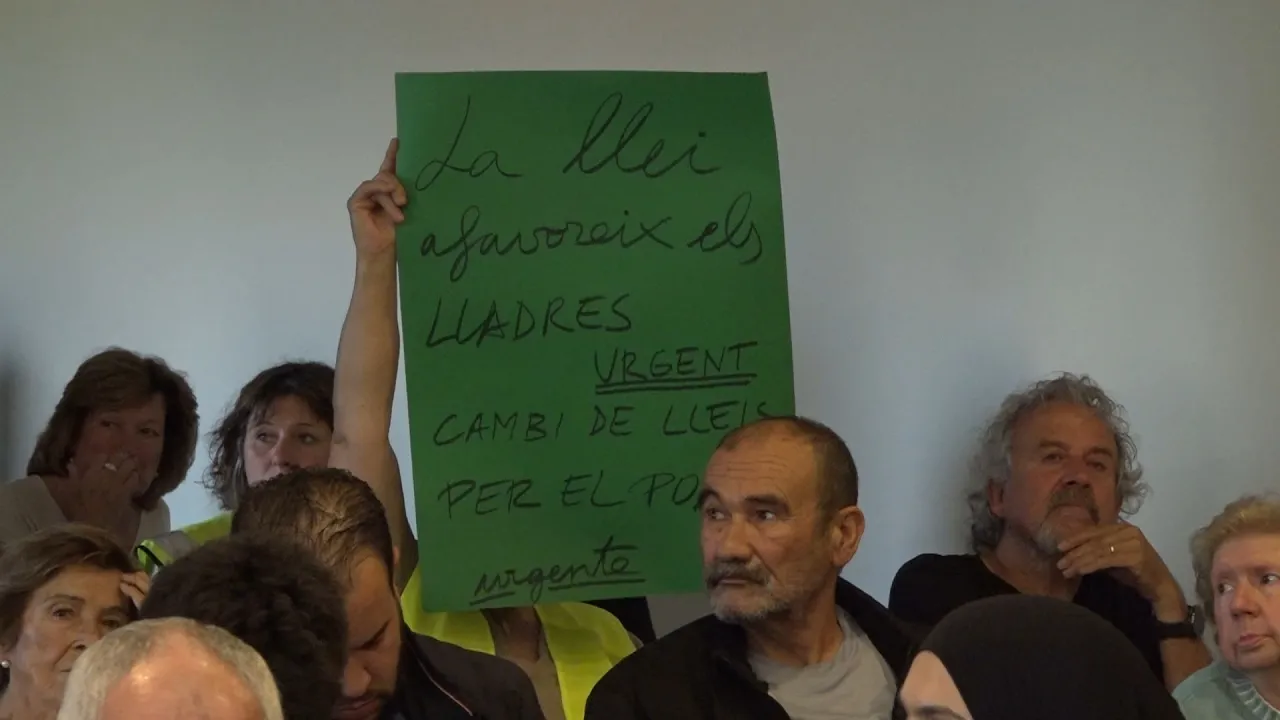 La llei
afavoreix els
LLADRES
URGENT
CAMBI DE LLEIS
PER EL
urgente